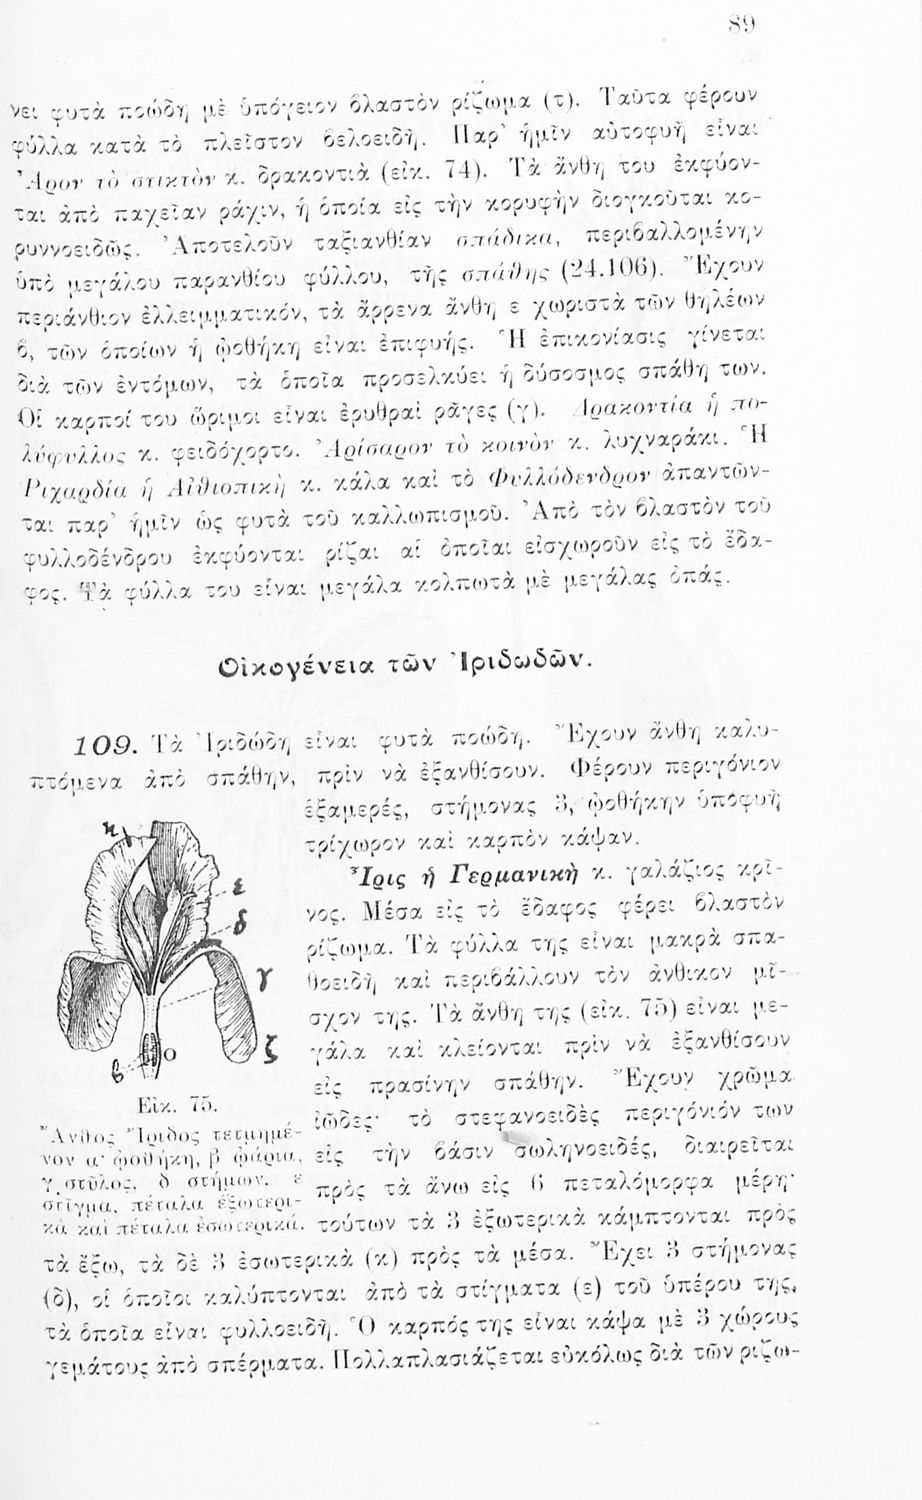 89
νει φυτὰ ποώδη μὲ ὑπόγειον βλαστὸν ρίζωμα (τ). Ταῦτα φέρουν
φύλλα κατὰ τὸ πλεῖστον βελοειδῆ. Παρ’ ἡμῖν αὐτοφυῆ εἶναι
Ἄρον τὸ στικτὸν κ. δρακοντιὰ (εἰκ. 74). Τὰ ἄνθη του ἐκφύον-
ται ἀπὸ παχεῖαν ράχιν, ἡ ὁποία εἰς τὴν κορυφὴν διογκοῦται κο-
ρυννοειδῶς. Ἀποτελοῦν ταξιανθίαν σπάδικα, περιβαλλομένην
ὑπὸ μεγάλου παρανθίου φύλλου, τῆς σπάθης (24.106). Ἔχουν
περιάνθιον ἐλλειμματικόν, τὰ ἄρρενα ἄνθη ε χωριστὰ τῶν θηλέων
β, τῶν ὁποίων ἡ ᾠοθήκη εἶναι ἐπιφυής. Ἡ ἐπικονίασις γίνεται
διὰ τῶν ἐντόμων, τὰ ὁποῖα προσελκύει ἡ δύσοσμος σπάθη των.
Οἱ καρποί του ὥριμοι εἶναι ἐρυθραὶ ρᾶγες (γ). Δρακοντία ἡ πο-
λύφυλλος κ. φειδόχορτο. Ἀρίσαρον τὸ κοινὸν κ. λυχναράκι. Ἡ
Ριχαρδία ἡ Αἰθιοπικὴ κ. κάλα καὶ τὸ Φυλλόδενδρον ἀπαντῶν-
ται παρ’ ἡμῖν ὡς φυτὰ τοῦ καλλωπισμοῦ. Ἀπὸ τὸν βλαστὸν τοῦ
φυλλοδένδρου ἐκφύονται ρίζαι αἱ ὁποῖαι εἰσχωροῦν εἰς τὸ ἔδα-
φος. Τὰ φύλλα του εἶναι μεγάλα κολπωτὰ μὲ μεγάλας ὀπάς.
Οἰκογένεια τῶν Ἰριδωδῶν.
109. Τὰ Ἰριδώδη εἶναι φυτὰ ποώδη. Ἔχουν ἄνθη καλυ-
πτόμενα ἀπὸ σπάθην, πρὶν νὰ ἐξανθίσουν. Φέρουν περιγόνιον
ἑξαμερές, στήμονας 3, ᾠοθήκην ὑποφυῆ
τρίχωρον καὶ καρπὸν κάψαν.
Ἶρις ἡ Γερμανικὴ κ. γαλάζιος κρῖ-
νος. Μέσα εἰς τὸ ἔδαφος φέρει βλαστὸν
ρίζωμα. Τὰ φύλλα της εἶναι μακρὰ σπα-
θοειδῆ καὶ περιβάλλουν τὸν ἀνθικον μῖ-
σχον της. Τὰ ἄνθη της (εἰκ. 75) εἶναι με-
γάλα καὶ κλείονται πρὶν νὰ ἐξανθίσουν
εἰς πρασίνην σπάθην. Ἔχουν χρῶμα
ἰῶδες· τὸ στεφανοειδὲς περιγόνιόν των
εἰς τὴν βάσιν σωληνοειδές, διαιρεῖται
πρὸς τὰ ἄνω εἰς 6 πεταλόμορφα μέρη·
τούτων τὰ 3 ἐξωτερικὰ κάμπτονται πρὸς
κ
ε
δ
γ
ζ
ο
β
Εἰκ. 75.
Ἄνθος Ἴριδος τετμημέ-
νον α· ᾠοθήκη, β ᾠάρια,
γ στῦλος, δ στήμων, ε
στίγμα, πέταλα ἐξωτερι-
κὰ καὶ πέταλα ἐσωτερικά.
τὰ ἔξω, τὰ δὲ 3 ἐσωτερικὰ (κ) πρὸς τὰ μέσα. Ἔχει 3 στήμονας
(δ), οἱ ὁποῖοι καλύπτονται ἀπὸ τὰ στίγματα (ε) τοῦ ὑπέρου της,
τὰ ὁποῖα εἶναι φυλλοειδῆ. Ὁ καρπός της εἶναι κάψα μὲ 3 χώρους
γεμάτους ἀπὸ σπέρματα. Πολλαπλασιάζεται εὐκόλως διὰ τῶν ριζω-